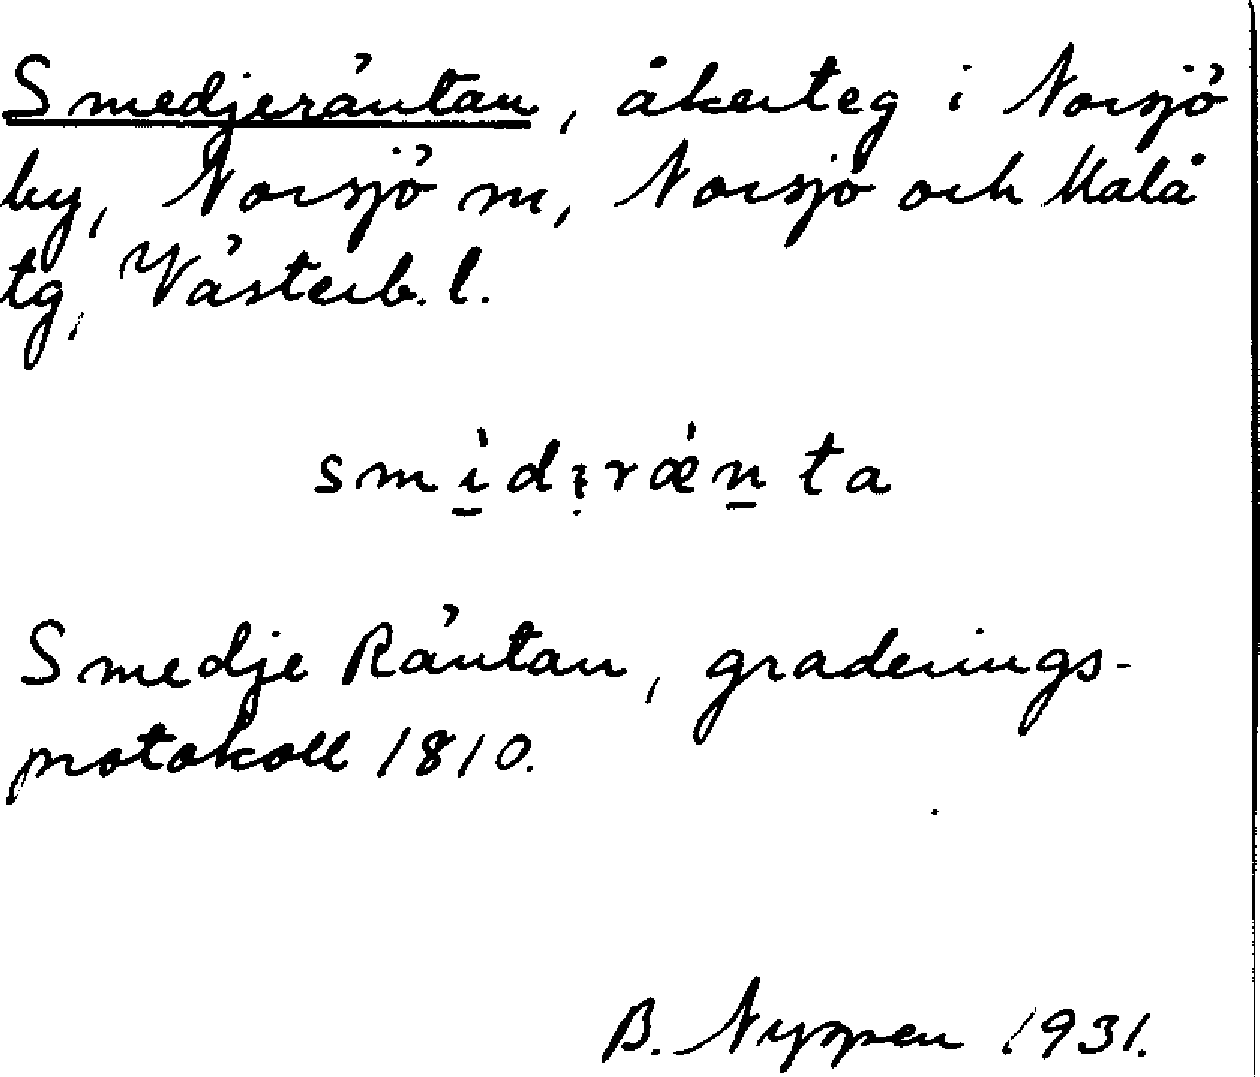 Smedjeräntan, åkerteg i Norsjö
by, Norsjö sn, Norsjö och Malå
tg, Västerb. l.
Smedje Räntan, graderings-
protokoll 1810.
B. 1931.